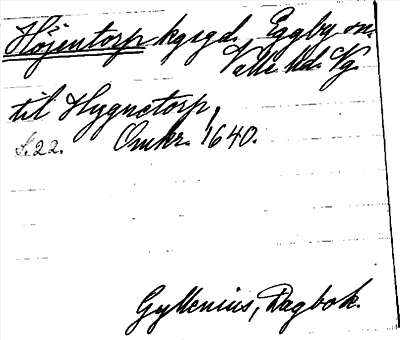 Höjentorp kgsgd. Eggby sn.
Valle hd. Vg.
til Hygnetorp,
S. 22. Omkr. 1640.
Gyllenius, Dagbok.